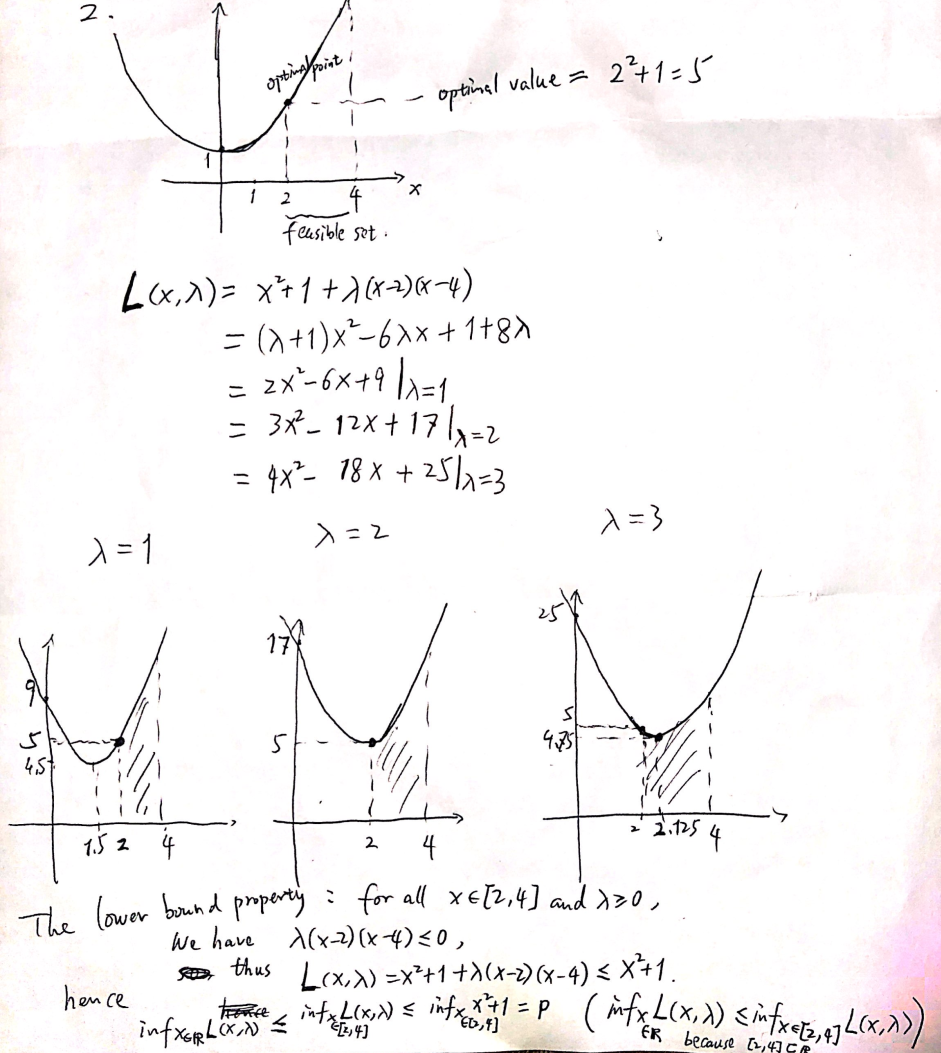 2.
optimal point
optimal value = 2²+1=5
1
1 2 4 x
feasible set.
L(x,λ)= x²+1+λ(x-2)(x-4)
= (λ+1)x²-6λx+1+8λ
= 2x²-6x+9 |λ=1
= 3x²- 12x+17 |λ=2
= 4x²- 18x+25|λ=3
λ=1
λ=2
λ=3
9
5
4.5
1.5 2 4
17
5
2 4
25
5
4.75
2 2.125 4
The lower bound property : for all x∈[2,4] and λ≥0,
We have λ(x-2)(x-4)≤0,
thus L(x,λ)=x²+1+λ(x-2)(x-4)≤x²+1.
hence
inf x∈R L(x,λ) ≤ inf x∈[2,4] L(x,λ) ≤ inf x∈[2,4] x²+1 = p (inf x∈R L(x,λ) ≤ inf x∈[2,4] L(x,λ))
because [2,4]⊂R